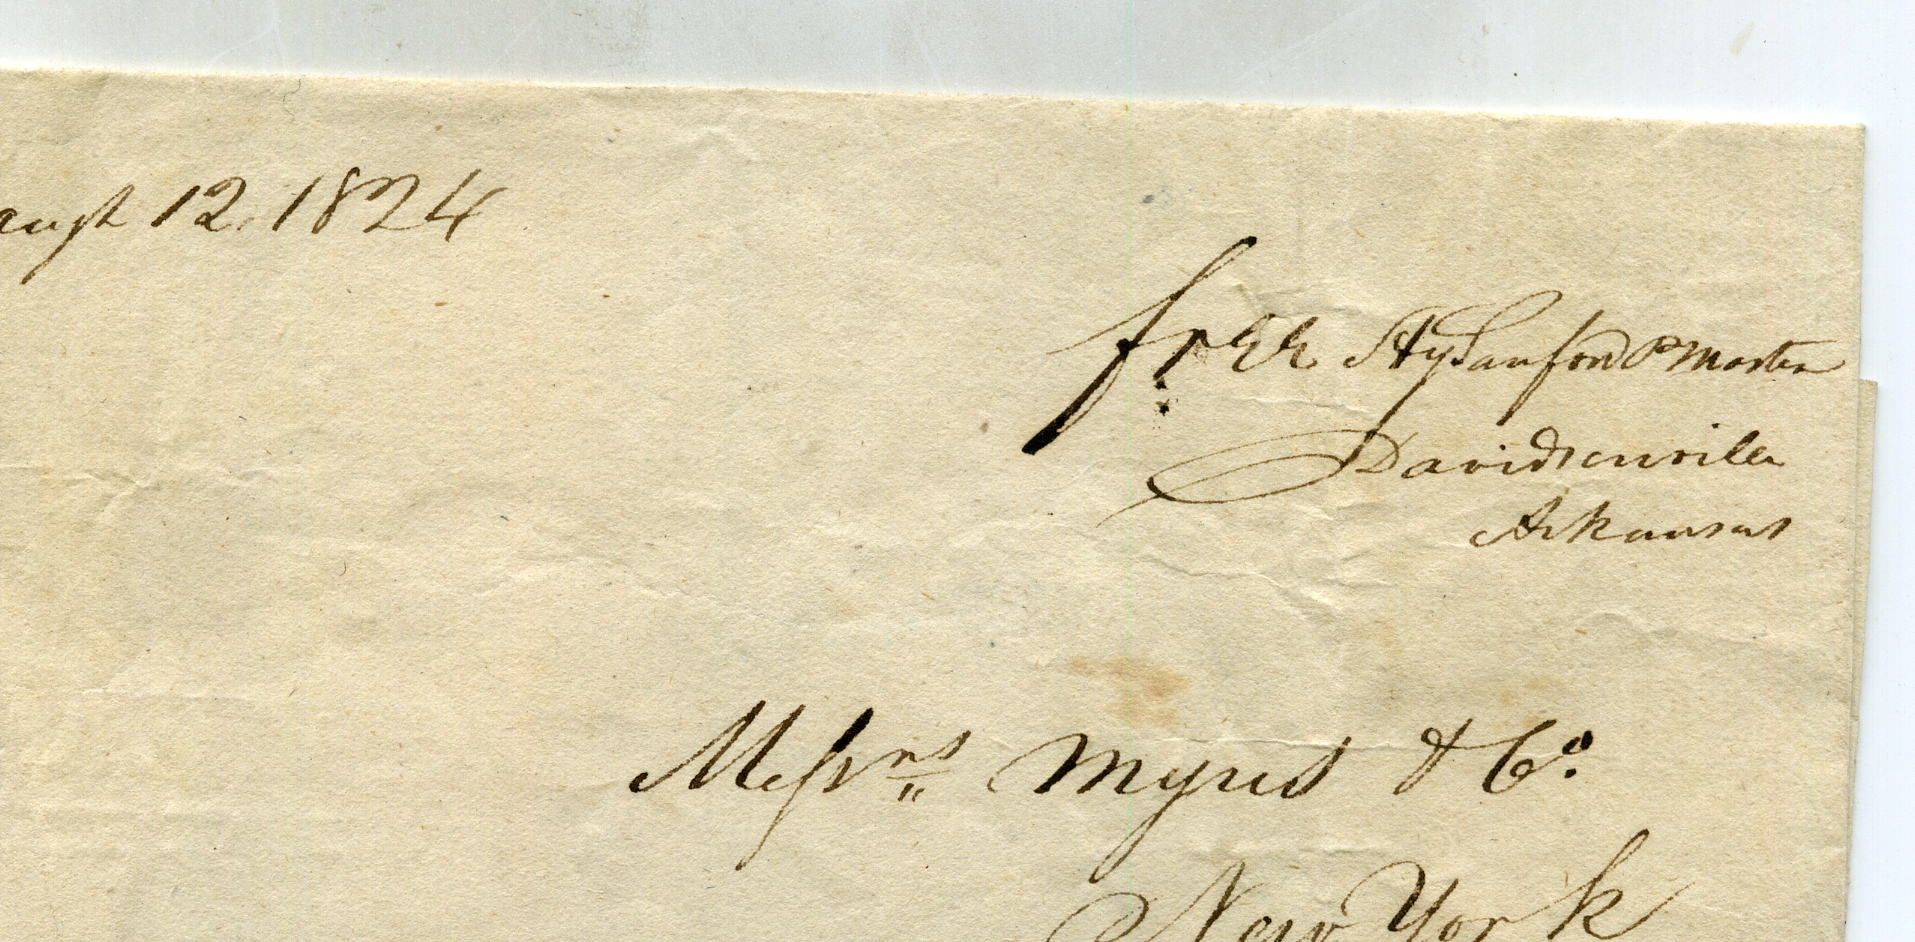 augt 12, 1824
free Hy Sanford P Master
Davidsonville
Arkansas
Messrs Myers & Co.
New York